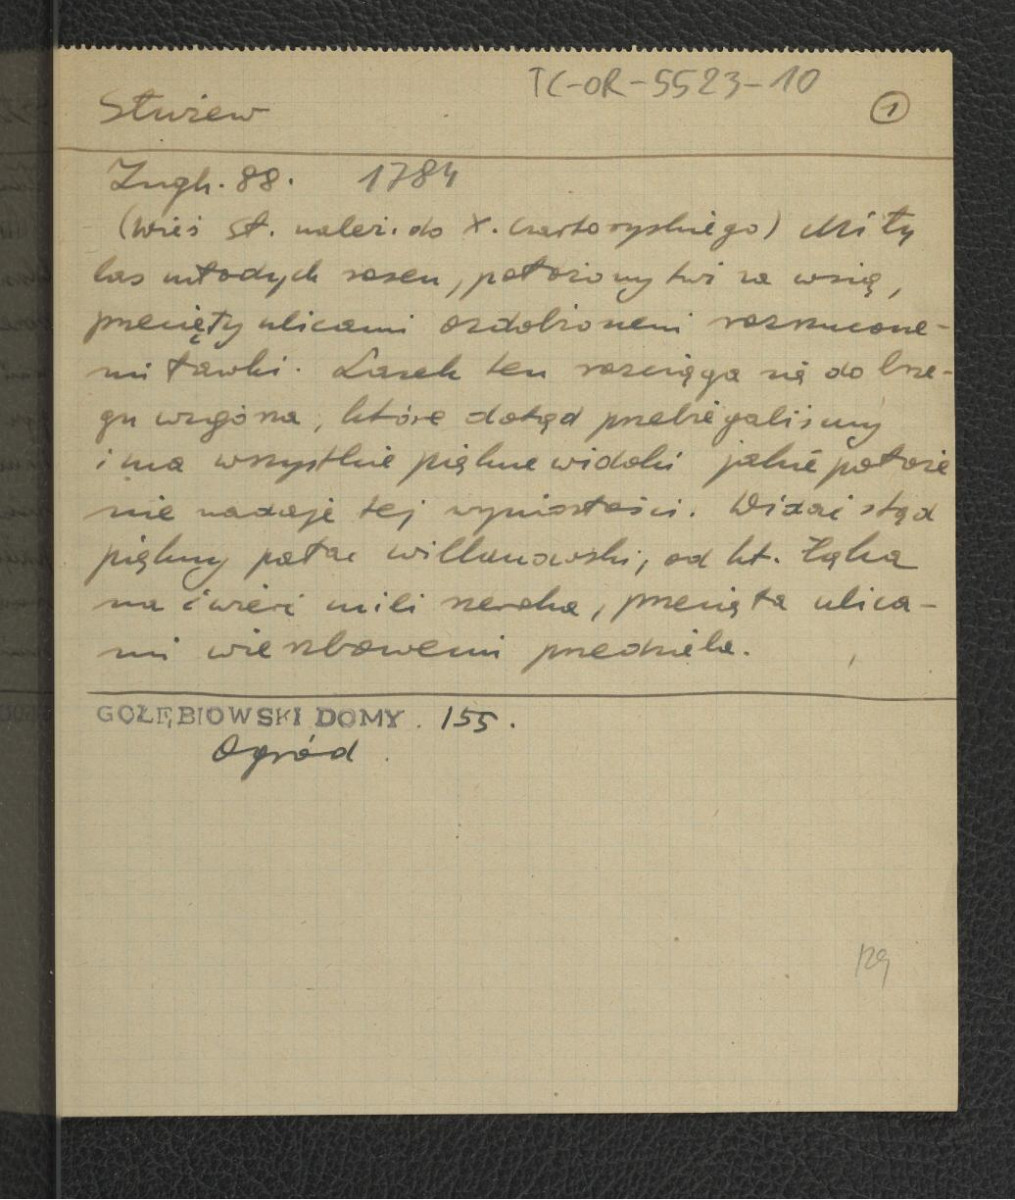 TC-OR-5523-10
Służew
1
Zugh. 88. 1784
(wieś St. należ. do X. Czartoryskiego) Miły
las młodych sosen, położony tuż za wsią,
przecięty ulicami ozdobionemi rozrzucone-
mi ławki. Lasek ten rozciąga się do brze-
gu wzgórza, które dotąd przebiegaliśmy
i ma wszystkie piękne widoki jakie położe
nie nadaje tej wyniosłości. Widać stąd
piękny pałac willanowski, od kt. łąka
na ćwierć mili szeroka, przecięta ulica-
mi wierzbowemi przedziela.
GOŁĘBIOWSKI DOMY. 155.
Ogród.
129